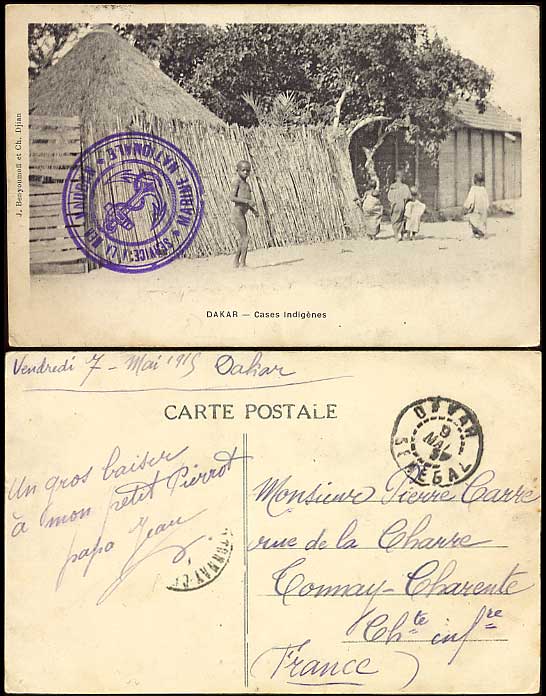 J. Benyoumoff et Ch. Djian
MARINE NATIONALE
SERVICE A LA MER
DAKAR — Cases Indigènes
Vendredi 7 - Mai 1915 Dakar
CARTE POSTALE
DAKAR
9
MAI
SENEGAL
Un gros baiser
à mon petit Pierrot
papa Jean
TONNAY-C
Monsieur Pierre Carré
rue de la Charre
Tonnay-Charente
Chte infre
France